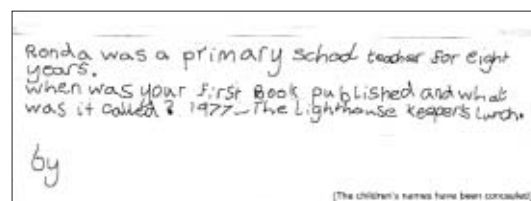 Ronda was a primary school teacher for eight
years.
when was your first Book published and what
was it called? 1977-The Lighthouse keepers lunch.
by
(The children's names have been concealed)